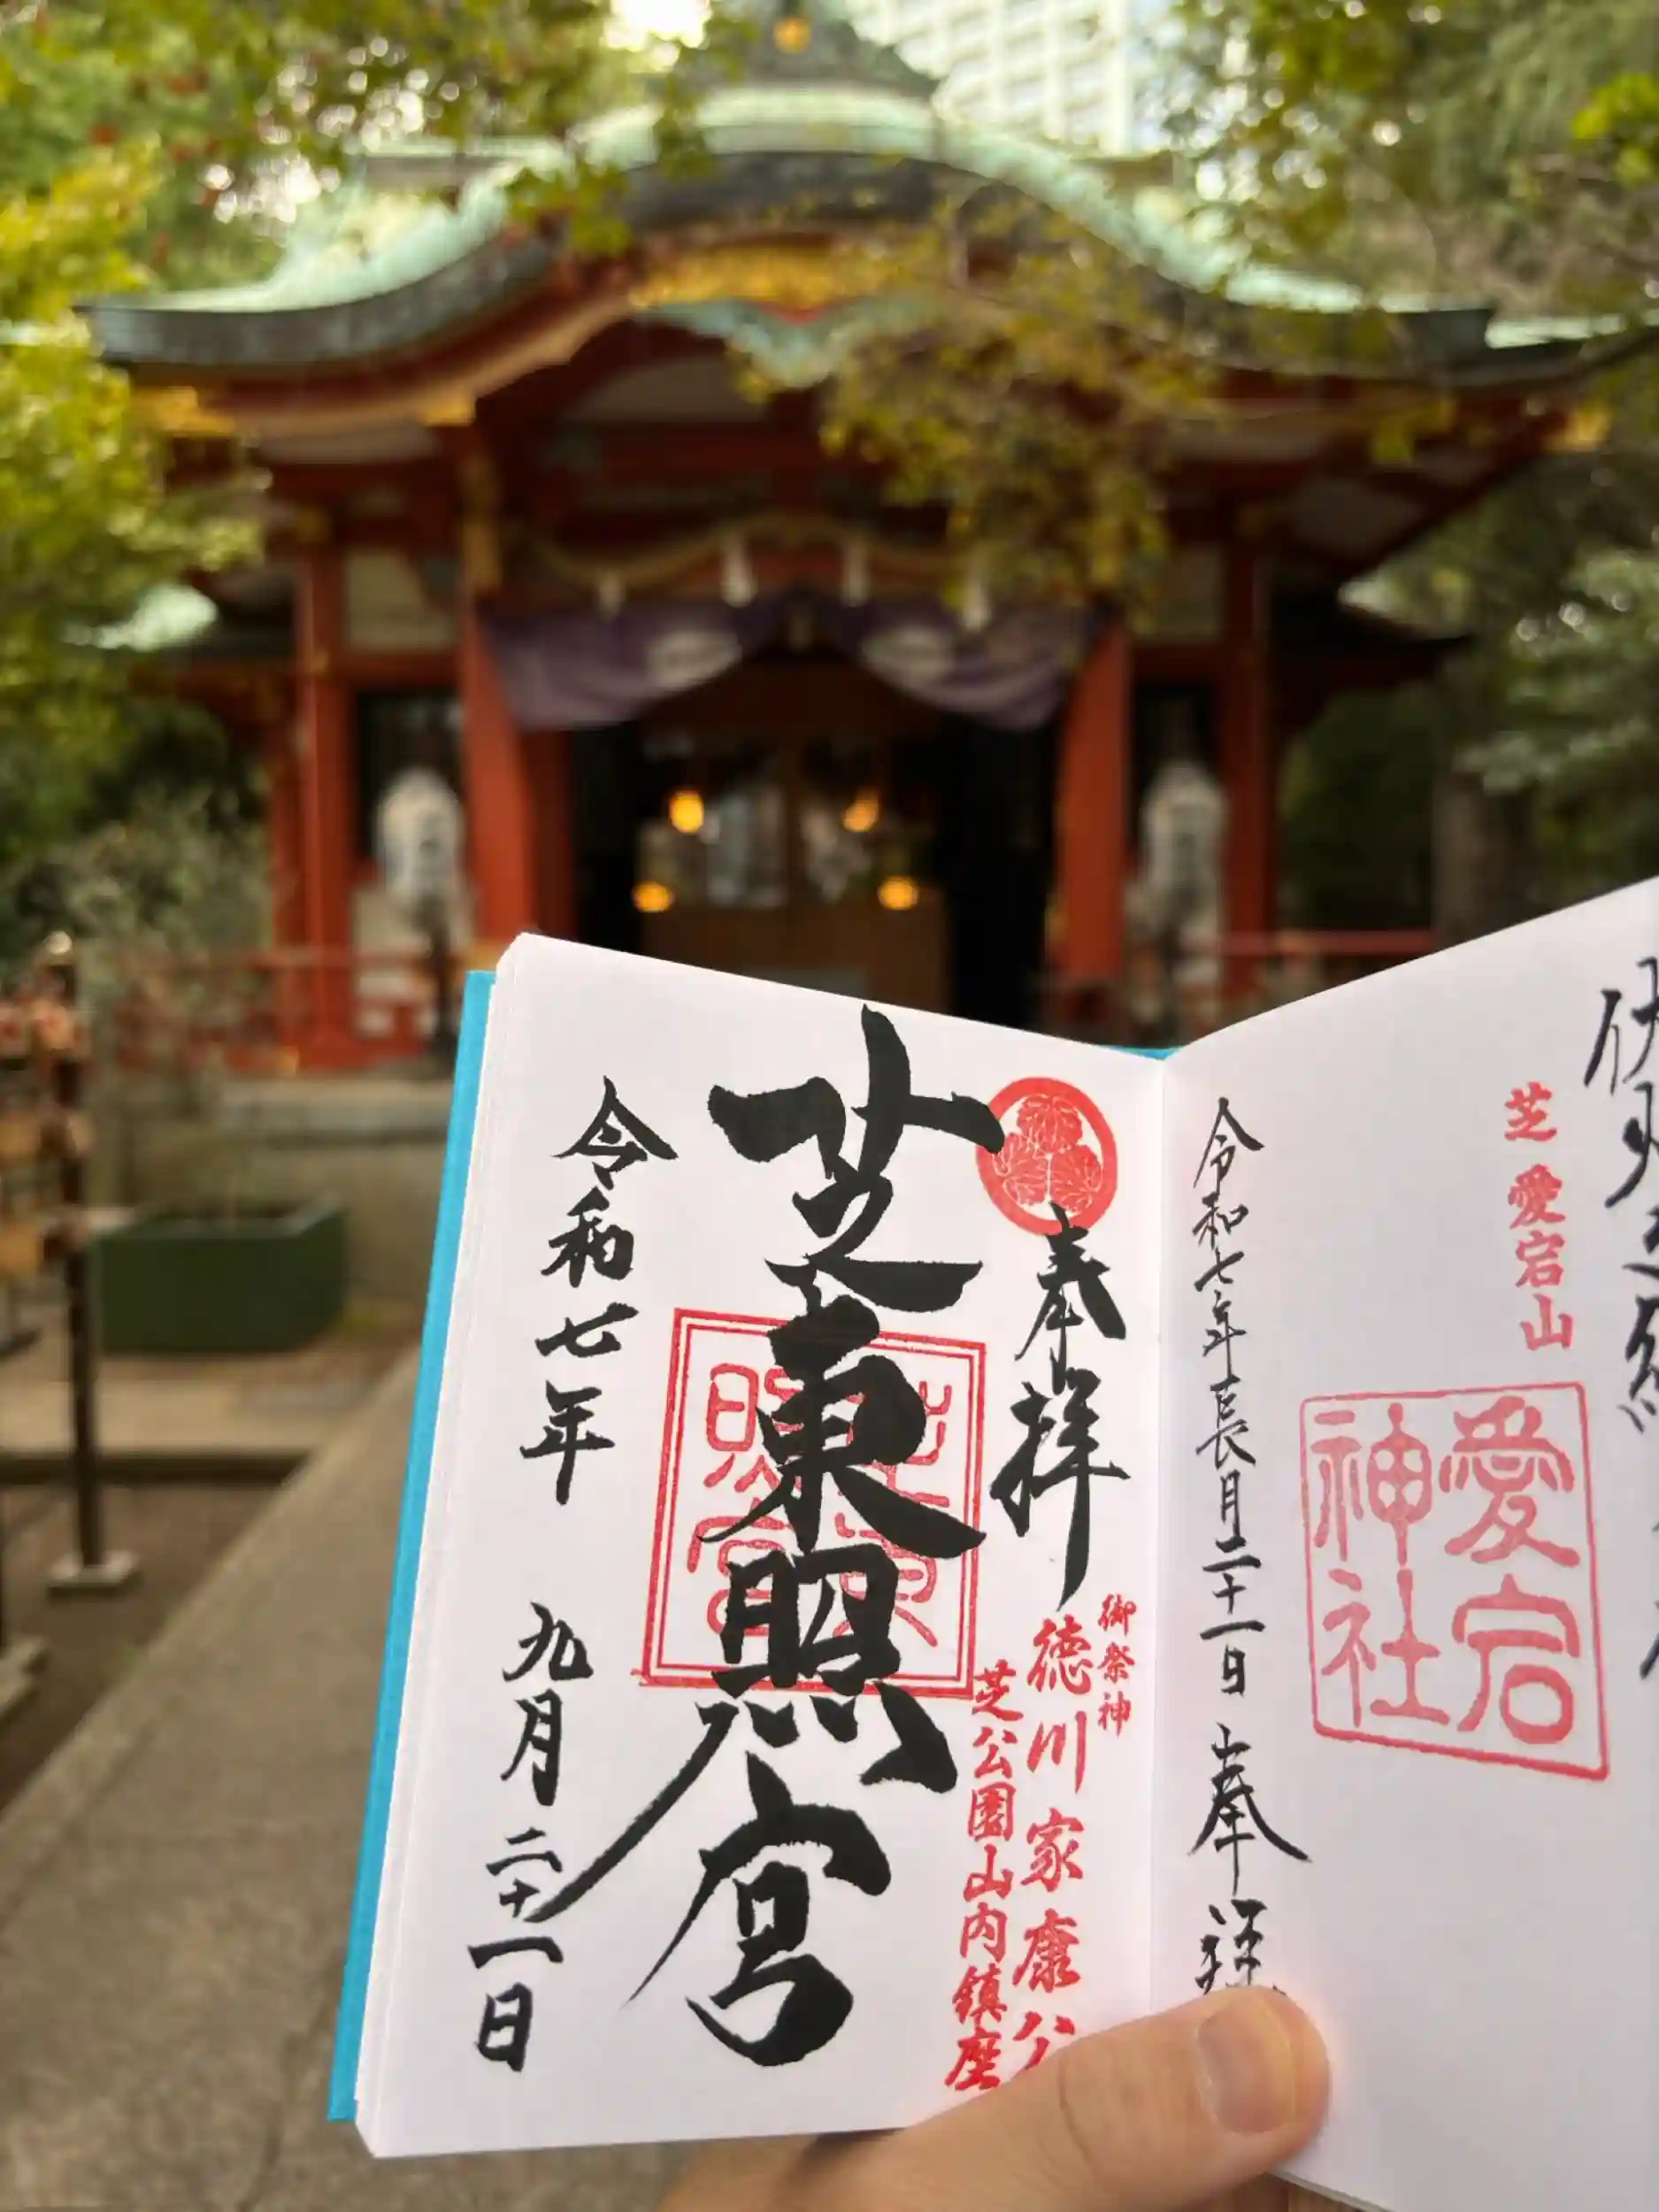 芝愛宕山
愛宕
神社
令和七年長月二十一日 奉拝
奉拝
御祭神
徳川家康公
芝公園山内鎮座
芝東照宮
芝東
照宮
令和七年 九月二十一日